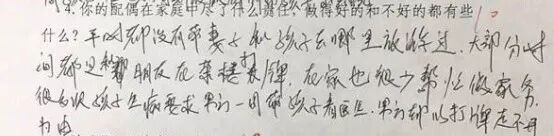 4. 你的配偶在家庭中尽了什么责任,做得好的和不好的都有些
什么?平时都没有带妻子和孩子去哪里放松过,大部分时
间都是和朋友在茶楼打牌,在家也很少帮忙做家务,
很多次孩子生病要求男的一同带孩子看医生,男的都以打牌走不开
为由